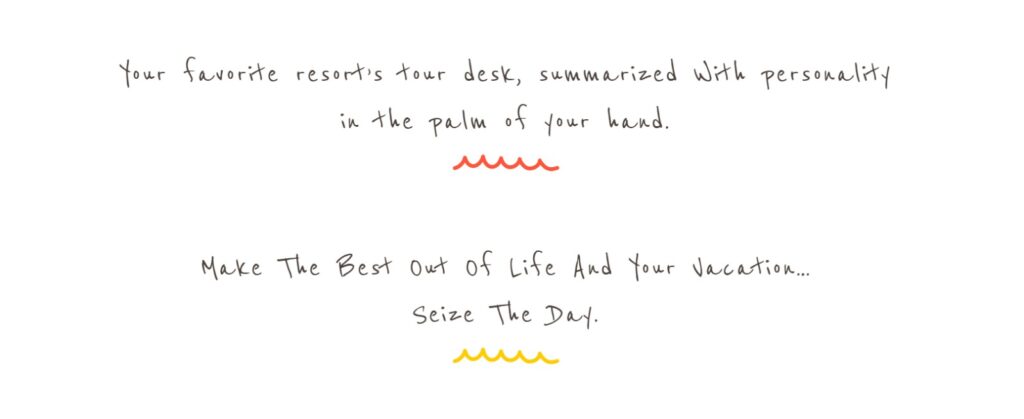 Your favorite resort's tour desk, summarized with personality
in the palm of your hand.
Make The Best Out Of Life And Your Vacation...
Seize The Day.